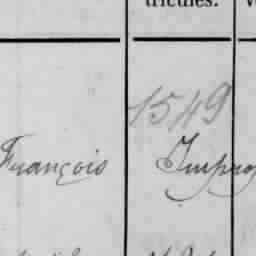 tricules.
1549
François Impro